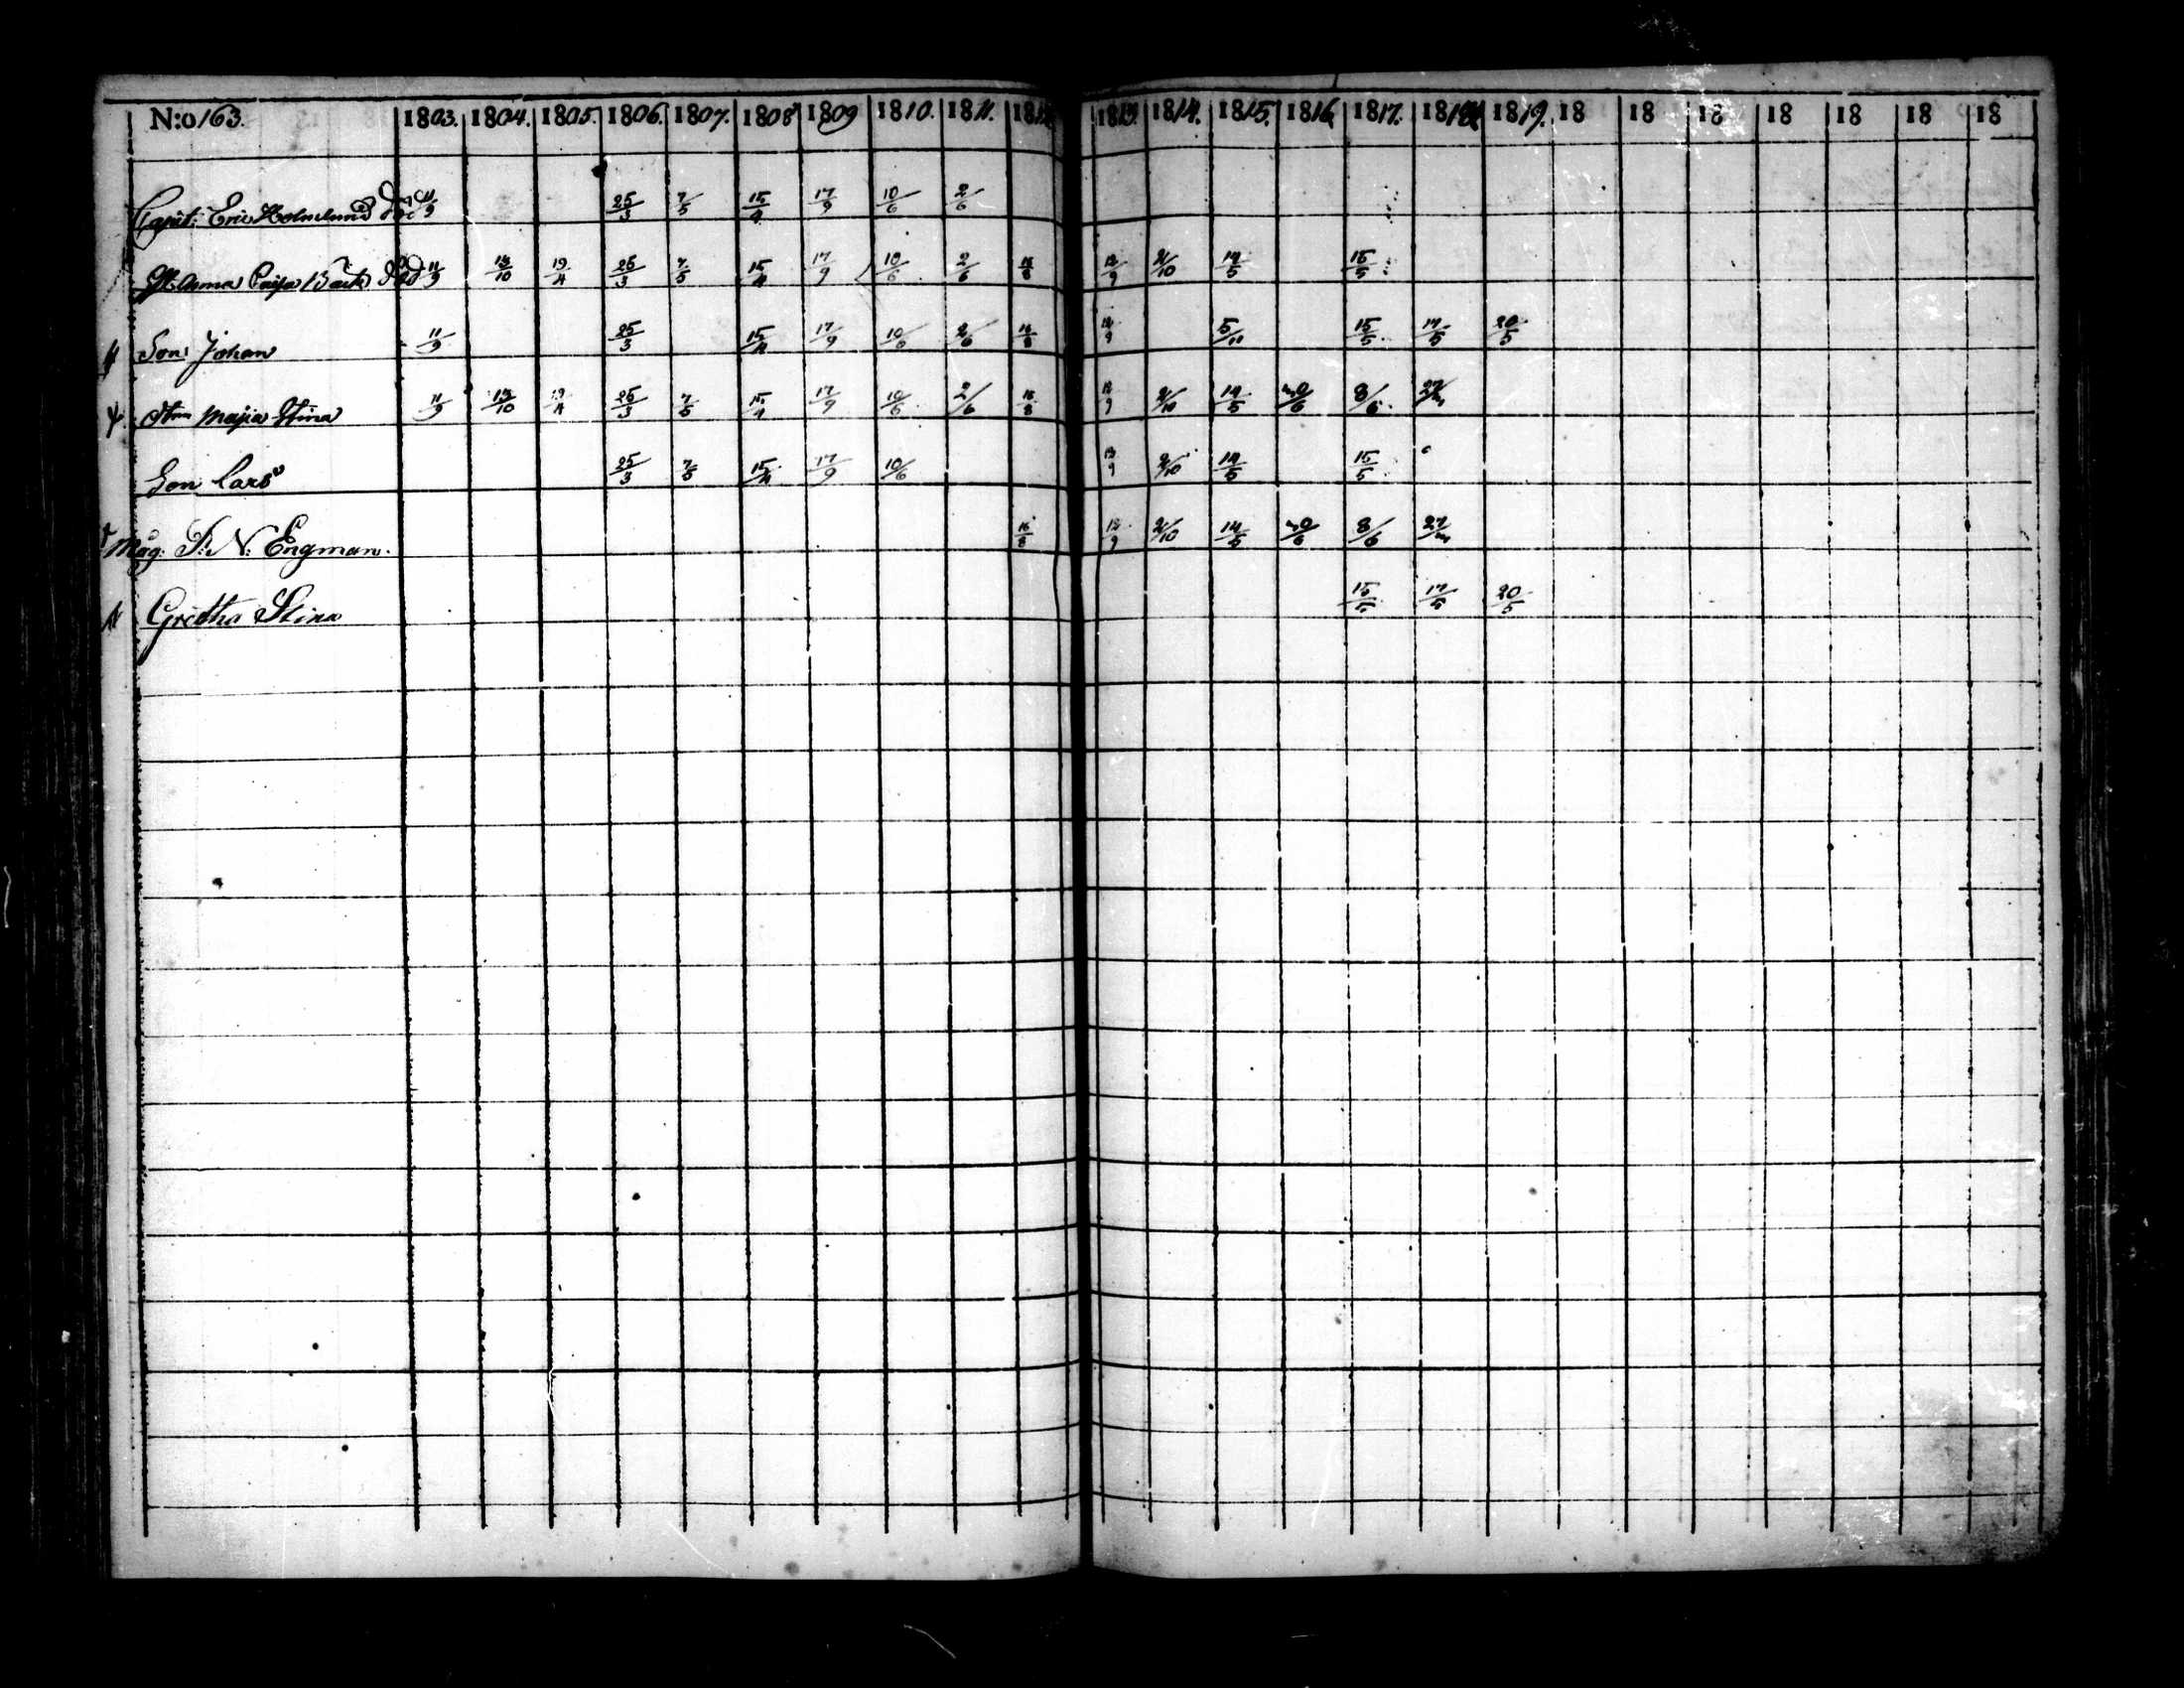 N:o 163. 1803. 1804. 1805. 1806. 1807. 1808 1809 1810. 1811. 1812 1813. 1814. 1815. 1816 1817. 1818 1819. 18 18 18 18 18 18 18
Capit: Eric Holmlund död 11/9 25/3 7/5 15/4 17/9 10/6 2/6
Anna Caisa Back död 11/9 13/10 19/4 25/3 7/5 15/4 17/9 10/6 2/6 16/8 12/9 2/10 14/5 15/5
Son Johan 11/9 25/3 15/4 17/9 10/6 2/6 16/8 12/9 5/11 15/5 17/5 20/5
Majia Stina 11/9 13/10 19/4 25/3 7/5 15/4 17/9 10/6 2/6 16/8 12/9 2/10 14/5 8/6
Son Lars 25/3 7/5 15/4 17/9 10/6 12/9 2/10 14/5 15/5
Måg: S: N: Engman. 16/8 12/9 2/10 14/5 8/6
Gretha Stina 15/5 17/5 20/5